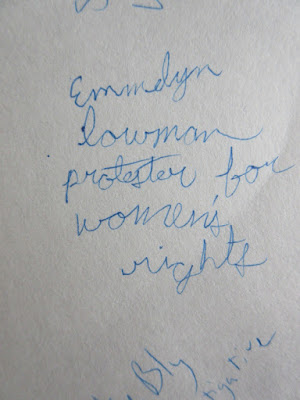 Emmelyn
lowman
protester for
women's
rights
Bly